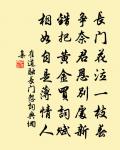 長門花泣一枝春
爭奈君恩別處新
錯把黃金買詞賦
相如自是薄情人
崔道融長門怨詞典網
集